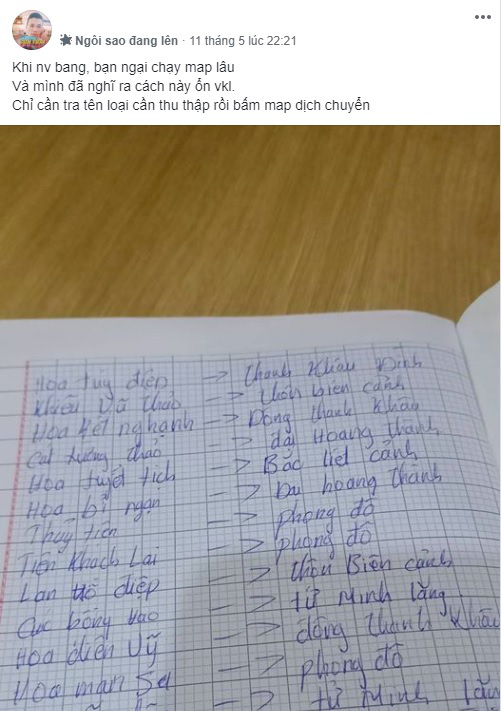 Ngôi sao đang lên · 11 tháng 5 lúc 22:21
Khi nv bang, bạn ngại chạy map lâu
Và mình đã nghĩ ra cách này ổn vkl.
Chỉ cần tra tên loại cần thu thập rồi bấm map dịch chuyển
Hoa túy điệp -> Thanh Khâu
Khiêu Vũ thảo -> thôn biên cảnh
Hoa kết nghạnh -> Đông thanh Khâu
Cát tường thảo -> đại Hoang thành
Hoa tuyết tích -> Bắc liệt cảnh
Hoa bỉ ngạn -> Đại hoang thành
Thuỷ tiên -> phong đô
Tiên Khách Lai -> phong đô
Lan hồ điệp -> thôn Biên cảnh
Cúc bông -> tử Minh lăng
Hoa diên Vỹ -> đông thanh Khâu
Hoa man Sa -> phong đô
-> tử Minh